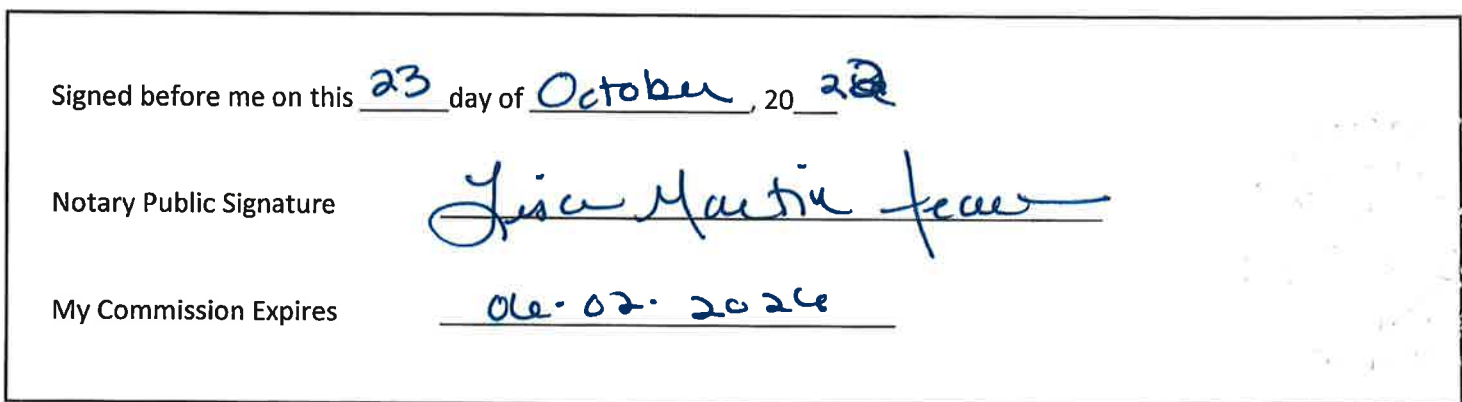 Signed before me on this 23 day of October, 20 22
Notary Public Signature Lisa Martin
My Commission Expires 06.02.2026